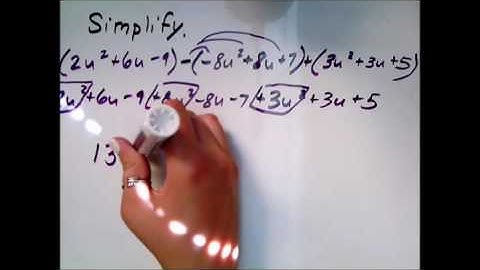 Simplify.
(2u²+6u-9)-(-8u²+8u+7)+(3u²+3u+5)
2u²+6u-9+8u²-8u-7+3u²+3u+5
13